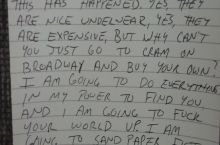 THIS HAS HAPPENED. YES, THEY
ARE NICE UNDERWEAR, YES, THEY
ARE EXPENSIVE, BUT WHY CAN'T
YOU JUST GO TO CRAM ON
BROADWAY AND BUY YOUR OWN?
I AM GOING TO DO EVERYTHING
IN MY POWER TO FIND YOU
AND I AM GOING TO FUCK
YOUR WORLD UP. I AM
GOING TO SAND PAPER